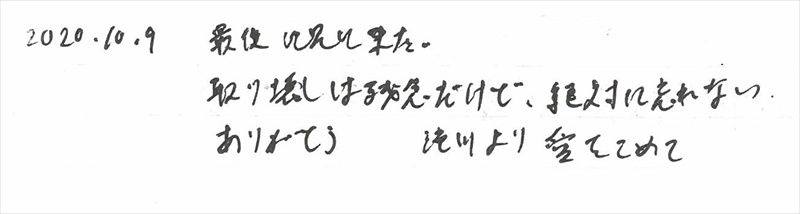 2020.10.9 最後に見に来た。
取り壊しは残念だけど、絶対に忘れない.
ありがとう 滝川より 愛をこめて